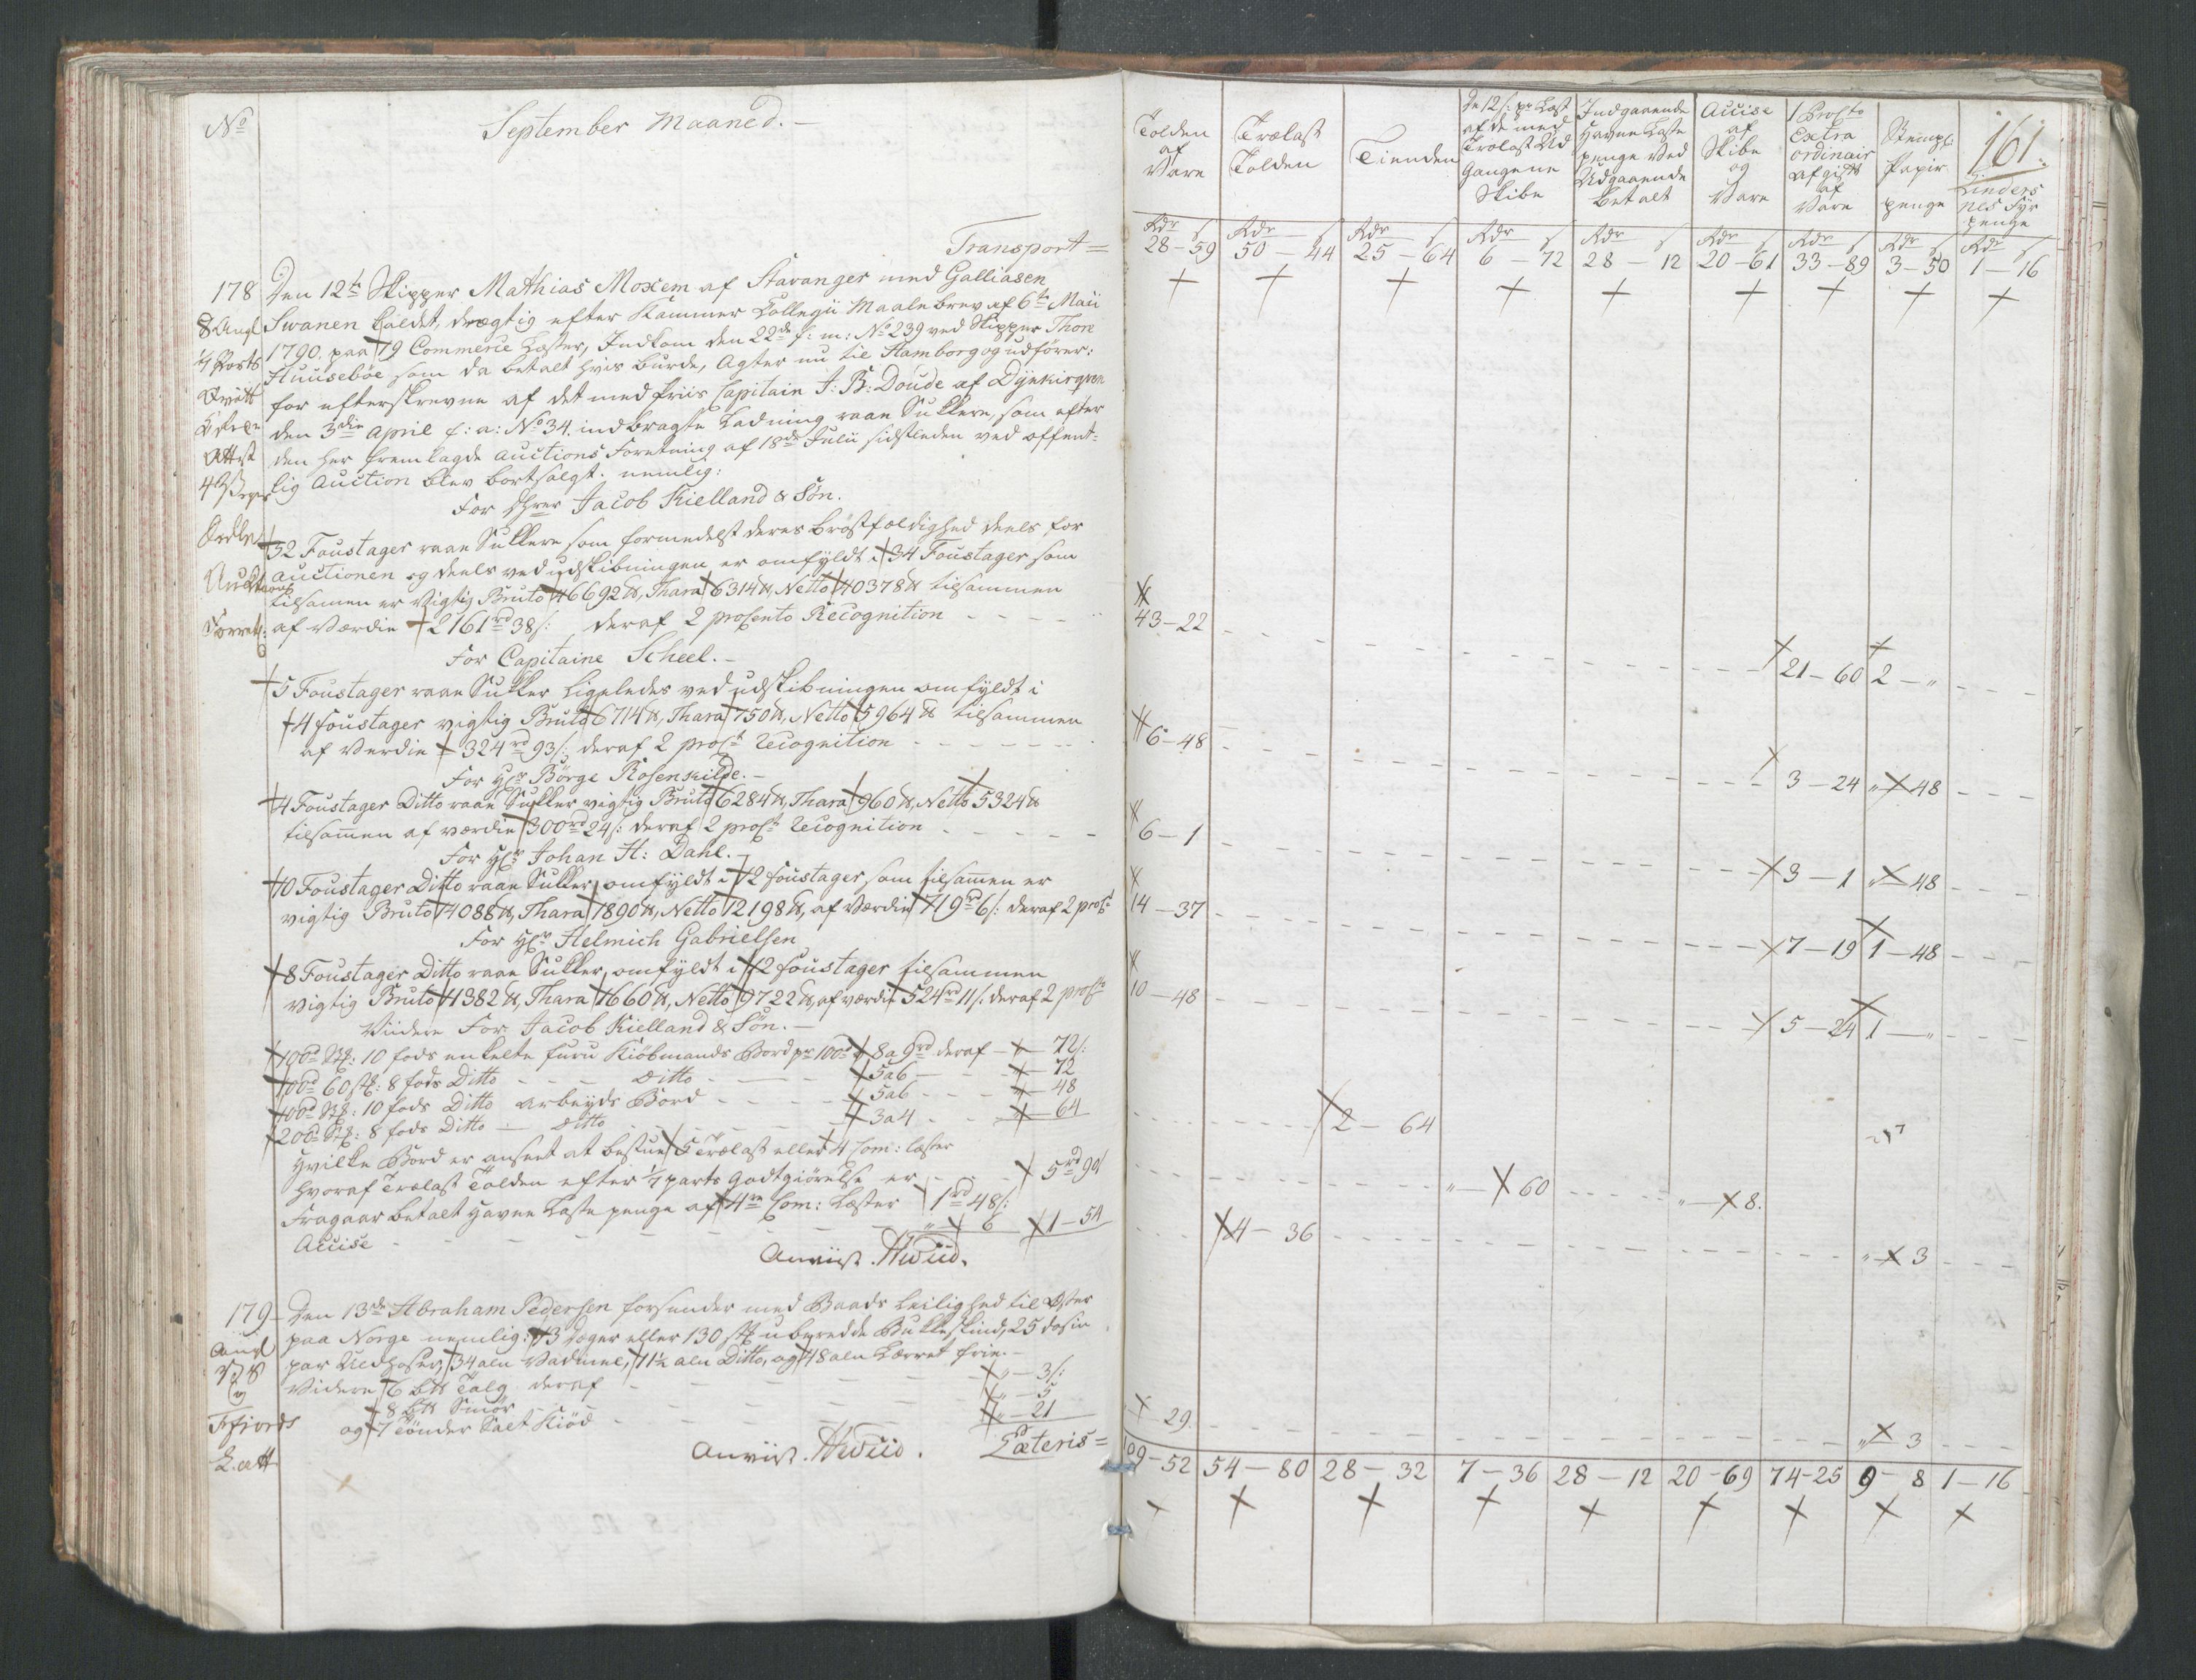 No
September Maaned. -
Transport =
178 Den 12te Skipper Mathias Moxem af Stavanger med Galliasen
8 Angl Swanen kaldet, drægtig efter Kammer Collegii Maalebrev af 6te Maii
1790. paa 19 Commerce Læster, Indkom den 22de f: m: No 239 ved Skipper Thore
1/7 Parts Huusebøe som da betalt hvis burde, Agter nu til Hamborg og udfører:
for efterskrevne af det med Priis Capitain J: B: Doude af Dynkirquen
den 3die April h: a: No 34. indbragte Ladning raae Sukkere, som efter
Attst den her fremlagde Auctions Forretning af 18de Julii sidstleden ved offent-
lig Auction blev bortsolgt. nemlig:
For Hrrer Jacob Kielland & Søn.
32 Foustager raae Sukkere som formedelst deres brøstfældighed deels for
Auctionen og deels ved udskibningen er omfyldt i 34 Foustager som
tilsamen er vigtig Bruto 46692 ℔, Thara 6314 ℔, Netto 40378 ℔ tilsammen
Forrett: af Værdie 2161rd 38s: deraf 2 proCento Recognition - - - -
For Capitaine Scheel. -
5 Foustager raae Sukker ligeledes ved udskibningen omfyldt i
4 foustager vigtig Bruto 6714 ℔, Thara 750 ℔, Netto 5964 ℔ tilsammen
af Verdie 324rd 93s: deraf 2 proCt Recognition - - - - -
For Hr Børge Rosenkilde. -
4 Foustager Ditto raae Sukker vigtig Bruto 6284 ℔, Thara 960 ℔, Netto 5324 ℔
tilsamen af værdie 300rd 24s: deraf 2 proCt Recognition - - - - -
For Hr Johan H: Dahl. -
10 Foustager Ditto raae Sukker, omfyldt i 12 foustager som tilsamen er
vigtig Bruto 14088 ℔, Thara 1890 ℔, Netto 12198 ℔, af Værdie 719rd 6s: deraf 2 proCt
For Hr Helmich Gabrielsen
8 Foustager Ditto raae Sukker, omfyldt i 12 foustager tilsammen
vigtig Bruto 11382 ℔, Thara 1660 ℔, Netto 9722 ℔, af værdie 524rd 11s: deraf 2 proCto
Viidere For Jacob Kielland & Søn. -
100d Stk: 10 fods enkelte furu Kiøbmands Bord pr 100d 8 a 9rd deraf - 72s:
100d 60 stk: 8 fods Ditto - - - Ditto - - - - 5 a 6 - - - 72
100d Stk: 10 fods Ditto arbeyds Bord - - - - - 5 a 6 - - - 48
200d Stk: 8 fods Ditto - Ditto - - - - - 3 a 4 - - - 64
Hvilke Bord er anseet at bestue 5 Trælast eller 4 Com: læster
hvoraf Trælast Tolden efter 1/7 parts Godtgiørelse er - - - 5rd 90s
Fragaar betalt Havne Laste penge af 4re Com: Læster 1rd 48s:
Accise - - - - - - - - - „ - 6 1 - 54
Anviist. Hwiid.
179 - Den 13de Abraham Pedersen forsender med Baads Leilighed til Øster
paa Norge nemlig: 13 Deger eller 130 stk uberedde Bukkeskind, 25 dosin
par Uldhoser, 34 aln Vadmel, 71 1/2 aln Ditto, og 48 aln Lærret frie. -
Videre 6 ℔ Talg deraf - - - - - - „ - 3s:
8 ℔ Smør - - - - - - „ - 5
og 7 Tønder Salt Kiød - - - - - - „ - 21
Anviist. Hwiid. Lateris =
161.
Tolden af Vare
Trælast Tolden
Tienden
De 12s: pr Læst af de med Trælast Ud Gangene Skibe
Indgaaende Havne Laste penge ved Udgaaende betalt
Accise af Skibe og Vare
1 ProCto Extra ordinair Afgift af Vare
Stempl: Papir penge
Linders nes Fyr penge
Rdr s Rdr s Rdr s Rdr s Rdr s Rdr s Rdr s Rdr s Rdr s
28 - 59 50 - 44 25 - 64 6 - 72 28 - 12 20 - 61 33 - 89 3 - 50 1 - 16
43 - 22 21 - 60 2 - „
6 - 48 3 - 24 „ - 48
6 - 1 3 - 1 „ - 48
14 - 37 7 - 19 1 - 48
10 - 48 5 - 24 1 - „
2 - 64
„ - 60 „ - 8.
4 - 36 „ - 3
- 29. „ - 3
109 - 52 54 - 80 28 - 32 7 - 36 28 - 12 20 - 69 74 - 25 9 - 8 1 - 16